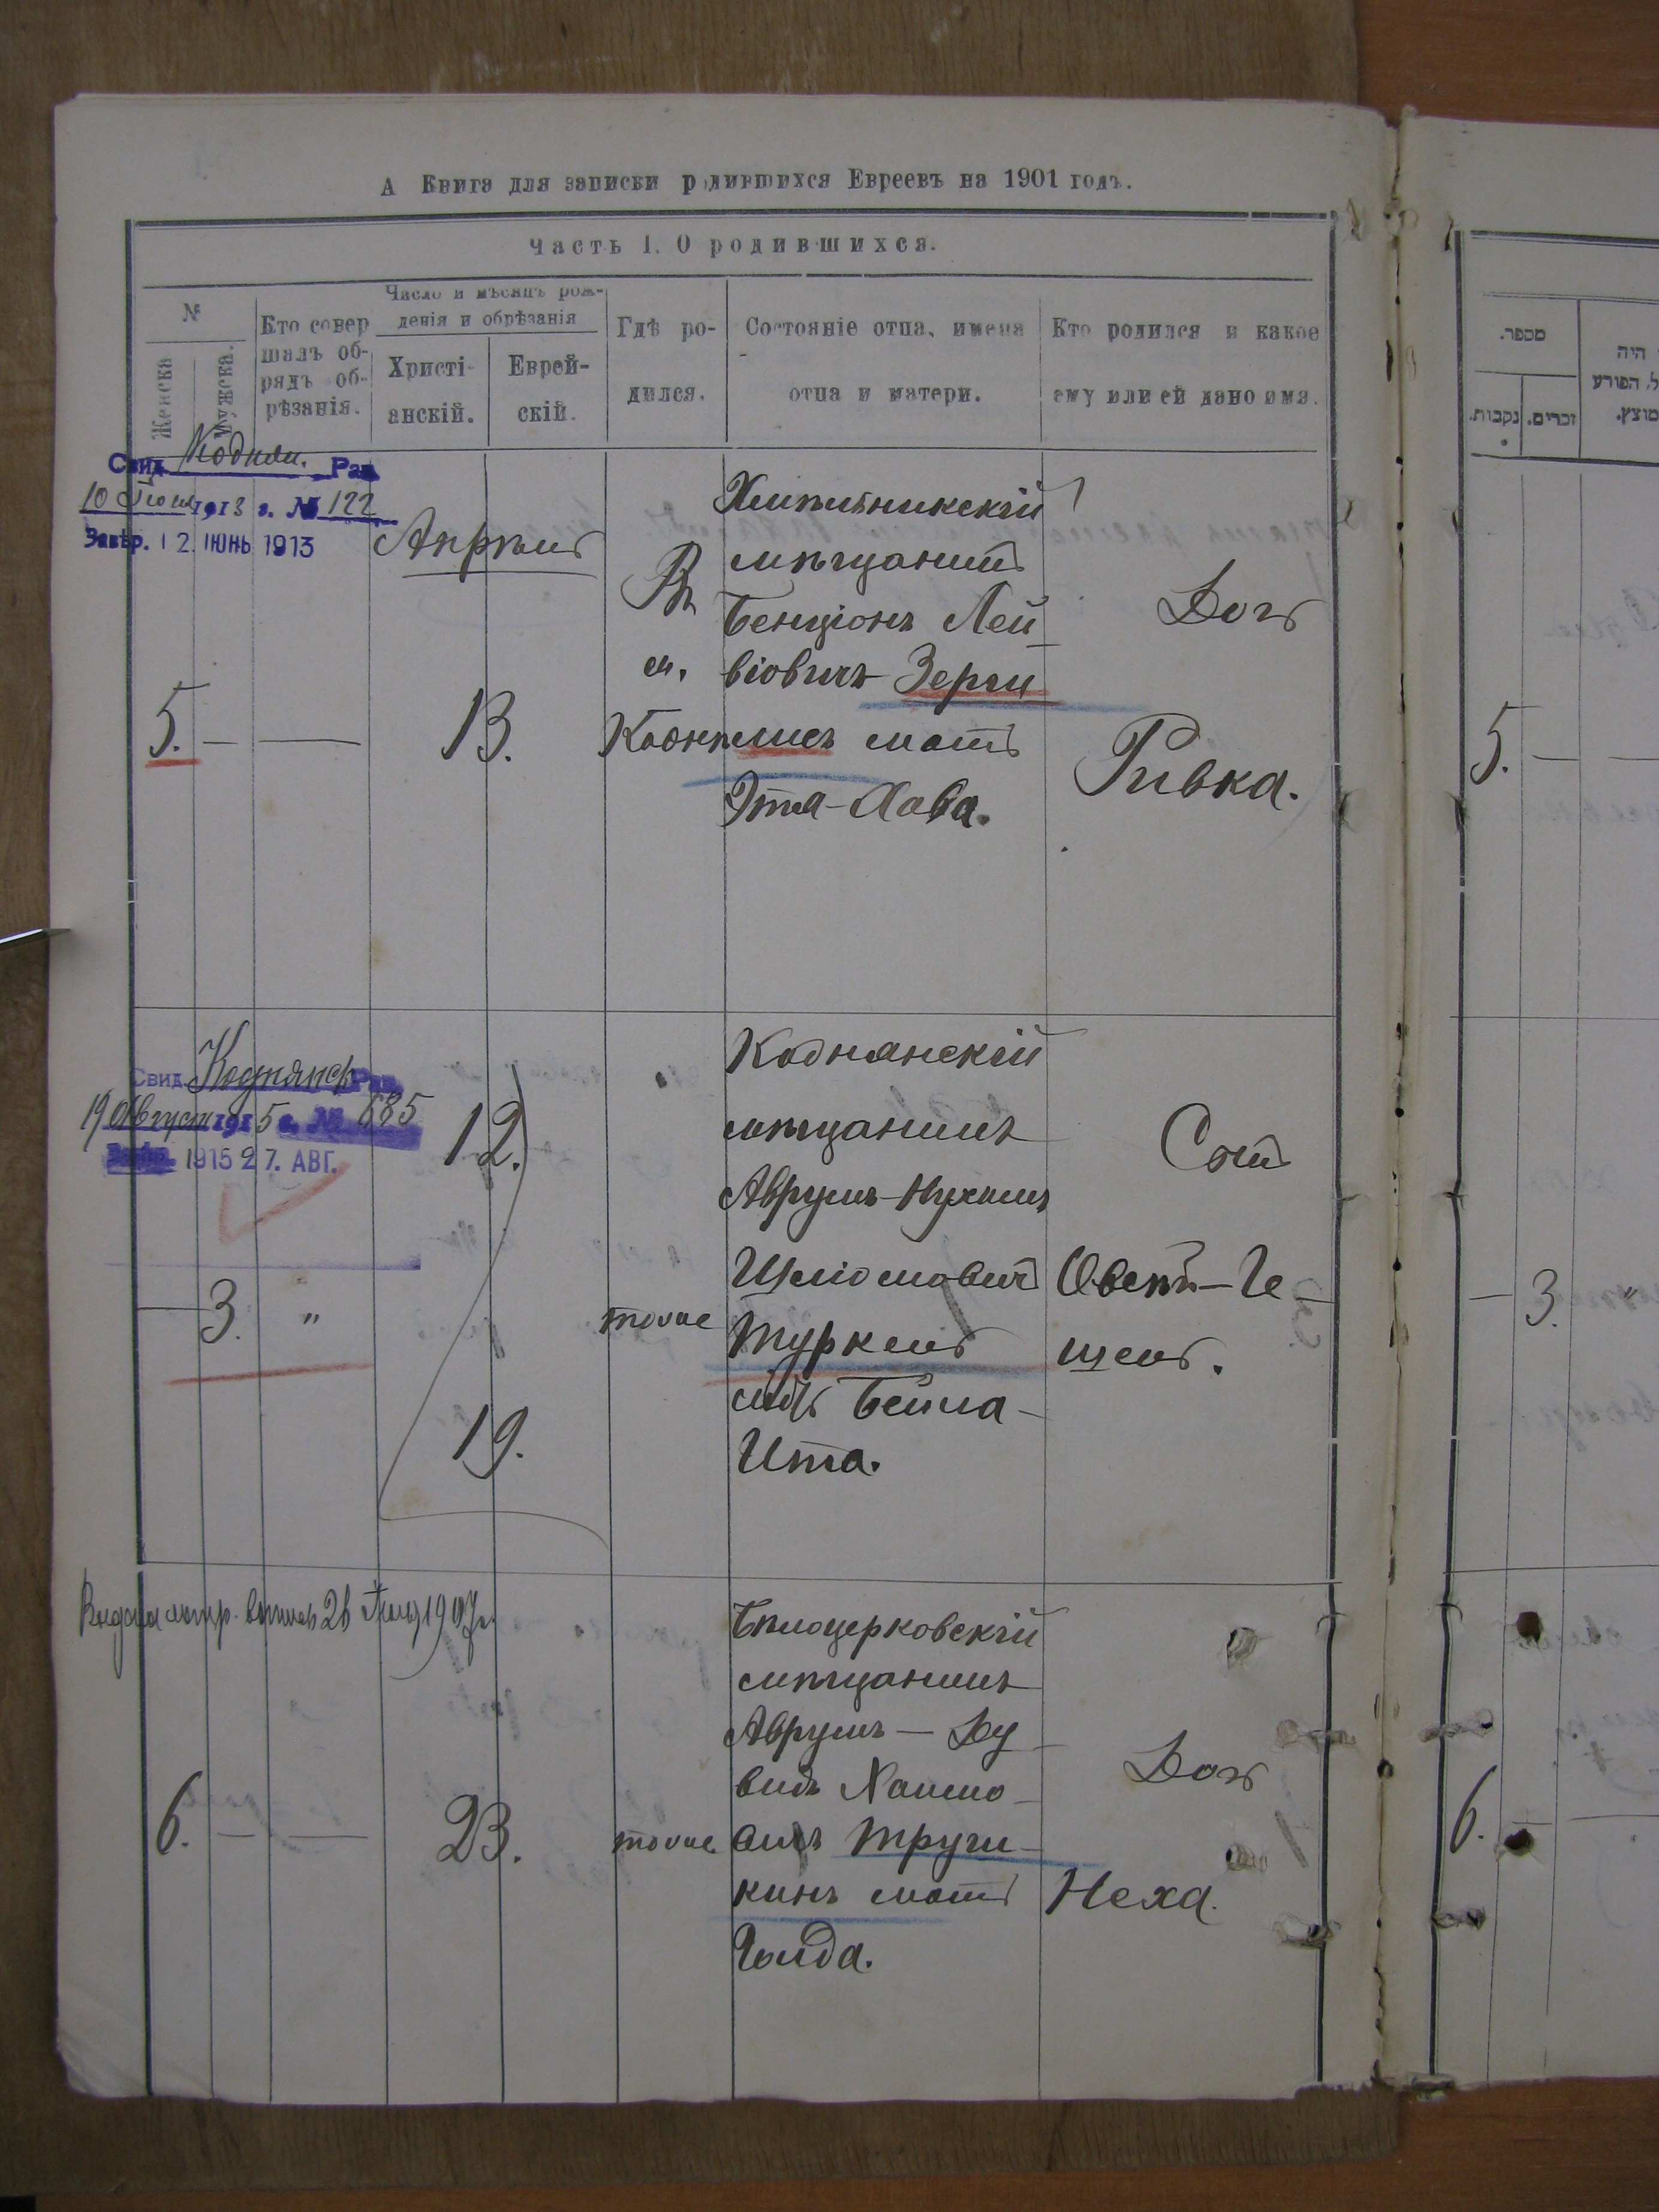 А Книга для записки родившихся Евреевъ на 1901 годъ.
Часть I. О родившихся.
№
Женска
Мужска.
Кто совер
шалъ об-
рядъ об-
рѣзанія.
Число и мѣсяцъ рож-
денія и обрѣзанія
Христі-
анскій.
Еврей-
скій.
Гдѣ ро-
дился.
Состояніе отца, имена
отца и матери.
Кто родился и какое
ему или ей дано имя.
Свид. Кодни. Рав
10 Іюня 1913 г. № 122
Завѣр. 12 ІЮНЬ 1913
Апрѣль
5. — — 13.
Въ
м.
Кодня
Хмѣльникскій
мѣщанинъ
Бенціонъ Лей
віовичъ
мать
Эта-Хава.
Дочь
Ривка.
Свид. Коднянск Рав
19 Августа 1915 г. № 685
1915 27. АВГ.
— 3. "
12.
19.
тоже
Коднянскій
мѣщанинъ
Аврумъ-Нухимъ
Шліомовичъ
Туркель
мать Бейла-
Ита.
Сынъ
Овсѣй-Ге-
шель.
1907 г.
6. — — 23.
тоже
Бѣлоцерковскій
мѣщанинъ
Аврумъ — Ду
видъ Хаимо-
вичъ Тручи-
кинъ мать
Голда.
Дочь
Неха.
מספר.
זכרים.
נקבות.
היה
הפורע
מוצץ.
5. —
— 3. "
6. —